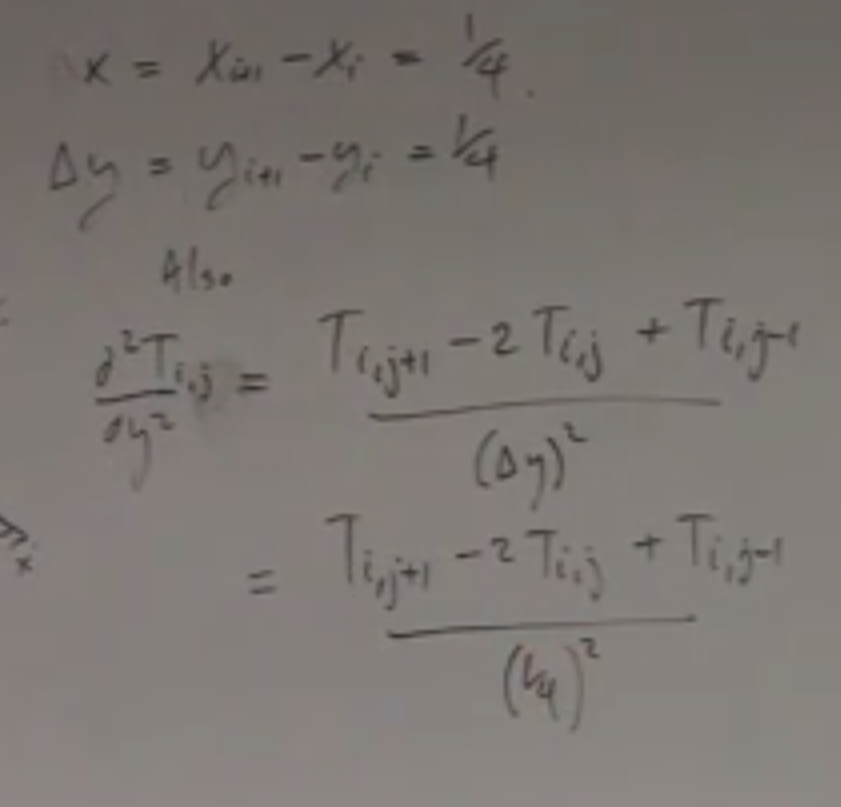 x = x_{i+1} - x_i = 1/4.
Δy = y_{i+1} - y_i = 1/4
Also
∂²T_{i,j}/∂y² = (T_{i,j+1} - 2T_{i,j} + T_{i,j-1})/(Δy)²
= (T_{i,j+1} - 2T_{i,j} + T_{i,j-1})/(1/4)²
x